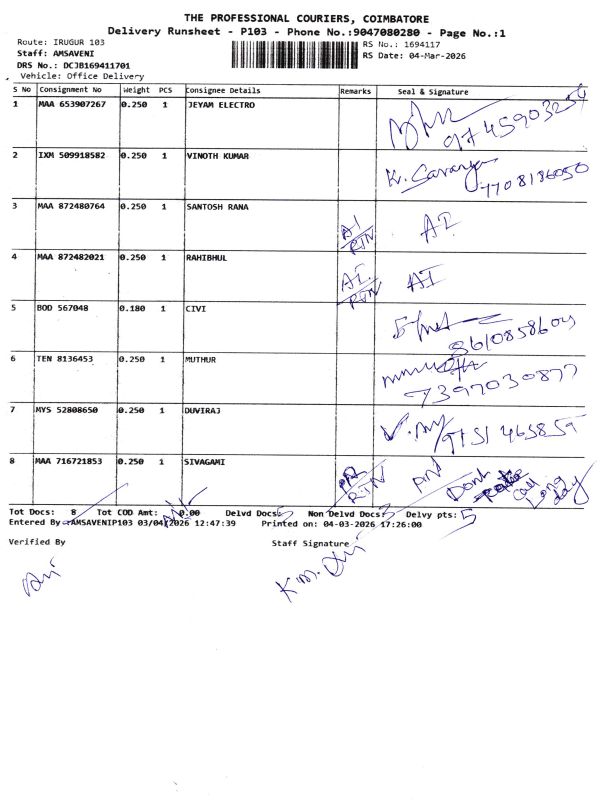 THE PROFESSIONAL COURIERS, COIMBATORE
Delivery Runsheet - P103 - Phone No.:9047080280 - Page No.:1
Route: IRUGUR 103
Staff: AMSAVENI
DRS No.: DCJB169411701
Vehicle: Office Delivery
RS No.: 1694117
RS Date: 04-Mar-2026
S No Consignment No Weight PCS Consignee Details Remarks Seal & Signature
1 MAA 653907267 0.250 1 JEYAM ELECTRO
2 IXM 509918582 0.250 1 VINOTH KUMAR K. Saranya
7708186050
3 MAA 872480764 0.250 1 SANTOSH RANA AI RTN AI
4 MAA 872482021 0.250 1 RAHIBHUL AI RTN AI
5 BOD 567048 0.180 1 CIVI
6 TEN 8136453 0.250 1 MUTHUR
7397030877
7 MYS 52808650 0.250 1 DUVIRAJ
8 MAA 716721853 0.250 1 SIVAGAMI RTN
call
Long
day
Tot Docs: 8 Tot COD Amt: 0.00 Delvd Docs: 5 Non Delvd Docs: 3 Delvy pts: 5
Entered By -AMSAVENIP103 03/04/2026 12:47:39 Printed on: 04-03-2026 17:26:00
Verified By Staff Signature